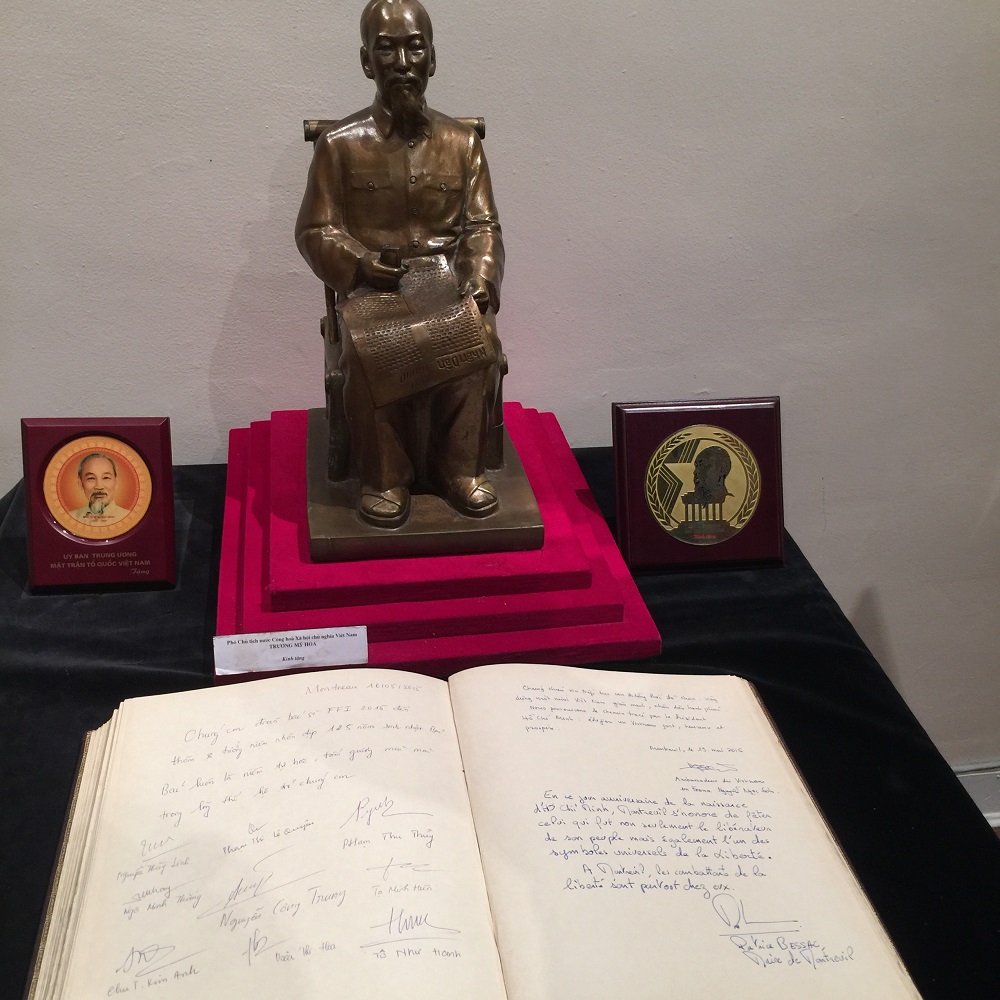 NhânDân
ỦY BAN TRUNG ƯƠNG
MẶT TRẬN TỔ QUỐC VIỆT NAM
Tặng
Phó Chủ tịch nước Cộng hoà Xã hội chủ nghĩa Việt Nam
TRƯƠNG MỸ HOA
Kính tặng
Montreuil 16/05/2015
Chúng con đoàn bác sĩ FFI 2015 đến
thăm & tưởng niệm nhân dịp 125 năm sinh nhật Bác
Bác luôn là niềm tự hào, tấm gương mãi mãi
trong lòng thế hệ trẻ chúng con
Phạm Thị Lệ Quyên
PHạm Thu Thủy
Nguyễn Thùy Linh
Ngô Minh Thắng
Nguyễn Công Trung
Tạ Minh Hiền
Như Hạnh
Chu T. Kim Anh
Nous poursuivrons le chemin tracé par le Président
Hồ Chí Minh
prospère
Montreuil, le 19 mai 2015
Ambassadeur du Vietnam
en France Nguyễn Ngọc Sơn
En ce jour anniversaire de la naissance
d'Hô Chi Minh, Montreuil s'honore de fêter
celui qui fut non seulement le libérateur
de son peuple mais également l'un des
symboles universels de la liberté.
A Montreuil, les combattants de la
liberté sont partout chez eux.
Patrice BESSAC
Maire de Montreuil